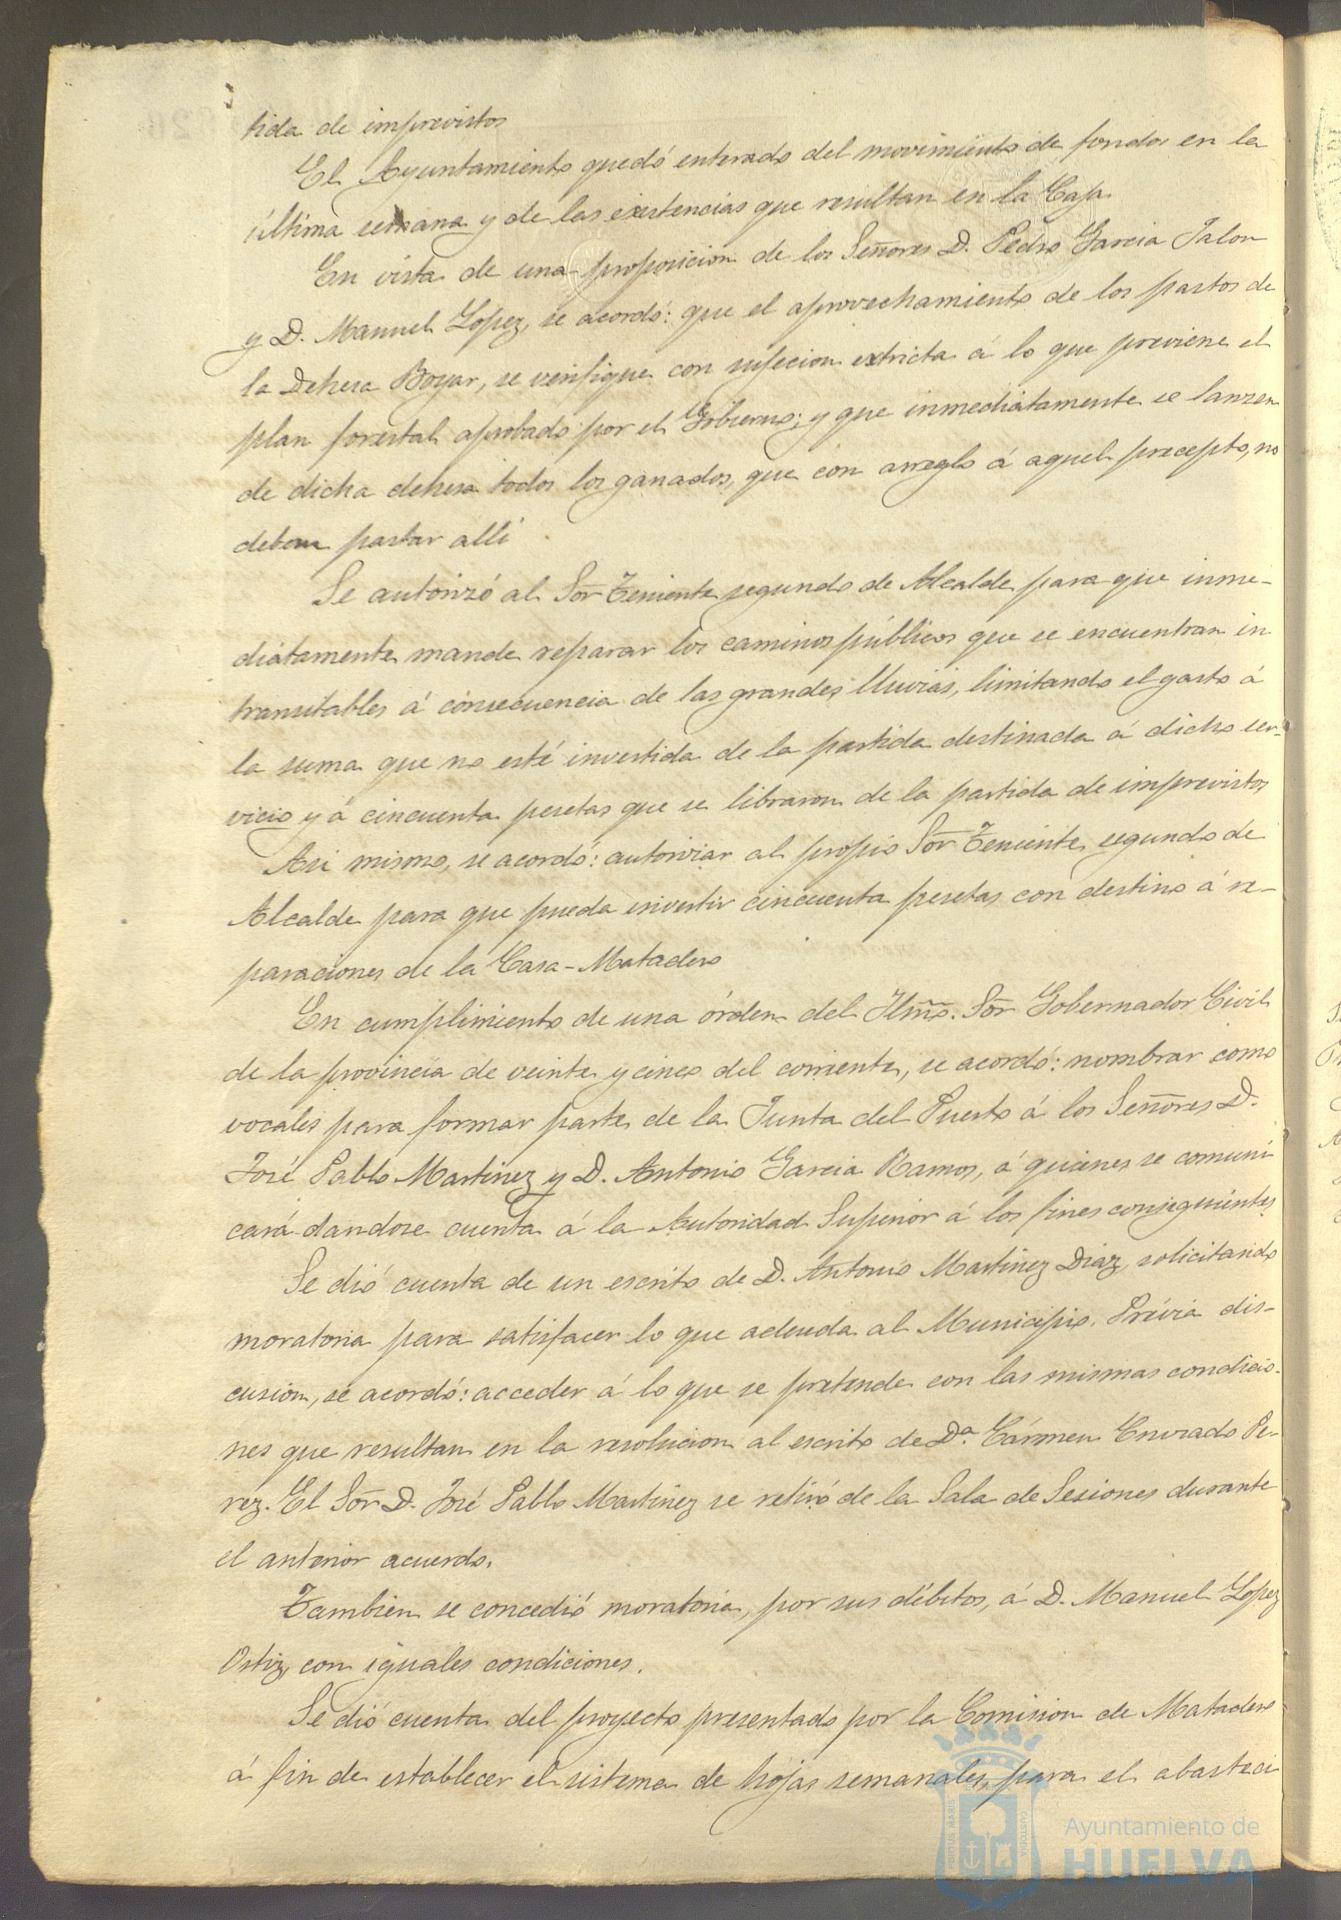 tida de imprevistos
El Ayuntamiento quedó enterado del movimiento de fondos en la
última semana y de las existencias que resultan en la Caja
En vista de una proposicion de los Señores D. Pedro Garcia Jalon
y D. Manuel Lopez, se acordó: que el aprovechamiento de los pastos de
la Dehesa Boyar, se verifique con sujecion extricta á lo que previene el
plan forestal aprobado por el Gobierno; y que inmediatamente se lanzen
de dicha dehesa todos los ganados, que con arreglo á aquel precepto, no
deben pastar allí
Se autorizó al Sor Teniente segundo de Alcalde para que inme-
diatamente mande reparar los caminos públicos que se encuentran in
transitables á consecuencia de las grandes lluvias, limitando el gasto á
la suma que no esté invertida de la partida destinada á dicho ser-
vicio y á cincuenta pesetas que se libraron de la partida de imprevistos
Asi mismo, se acordó: autorizar al propio Sor Teniente segundo de
Alcalde para que pueda invertir cincuenta pesetas con destino á re-
paraciones de la Casa-Matadero
En cumplimiento de una órden del Iltmo. Sor Gobernador Civil
de la provincia de veinte y cinco del corriente, se acordó: nombrar como
vocales para formar parte de la Junta del Puerto á los Señores D.
José Pablo Martinez y D. Antonio Garcia Ramos, á quienes se comuni
cará dandose cuenta á la Autoridad Superior á los fines consiguientes
Se dio cuenta de un escrito de D. Antonio Martinez Diaz, solicitando
moratoria para satisfacer lo que adeuda al Municipio. Prévia dis-
cusion, se acordó: acceder á lo que se pretende con las mismas condicio-
nes que resultan en la resolucion al escrito de Dª. Cármen Pe-
rez. El Sor D. José Pablo Martinez se retiró de la Sala de Sesiones durante
el anterior acuerdo.
Tambien se concedió moratoria, por sus débitos, á D. Manuel Lopez
Ortiz, con iguales condiciones.
Se dió cuenta del proyecto presentado por la Comision de Matadero
á fin de establecer el sistema de hojas semanales, para el abasteci
Ayuntamiento de
HUELVA